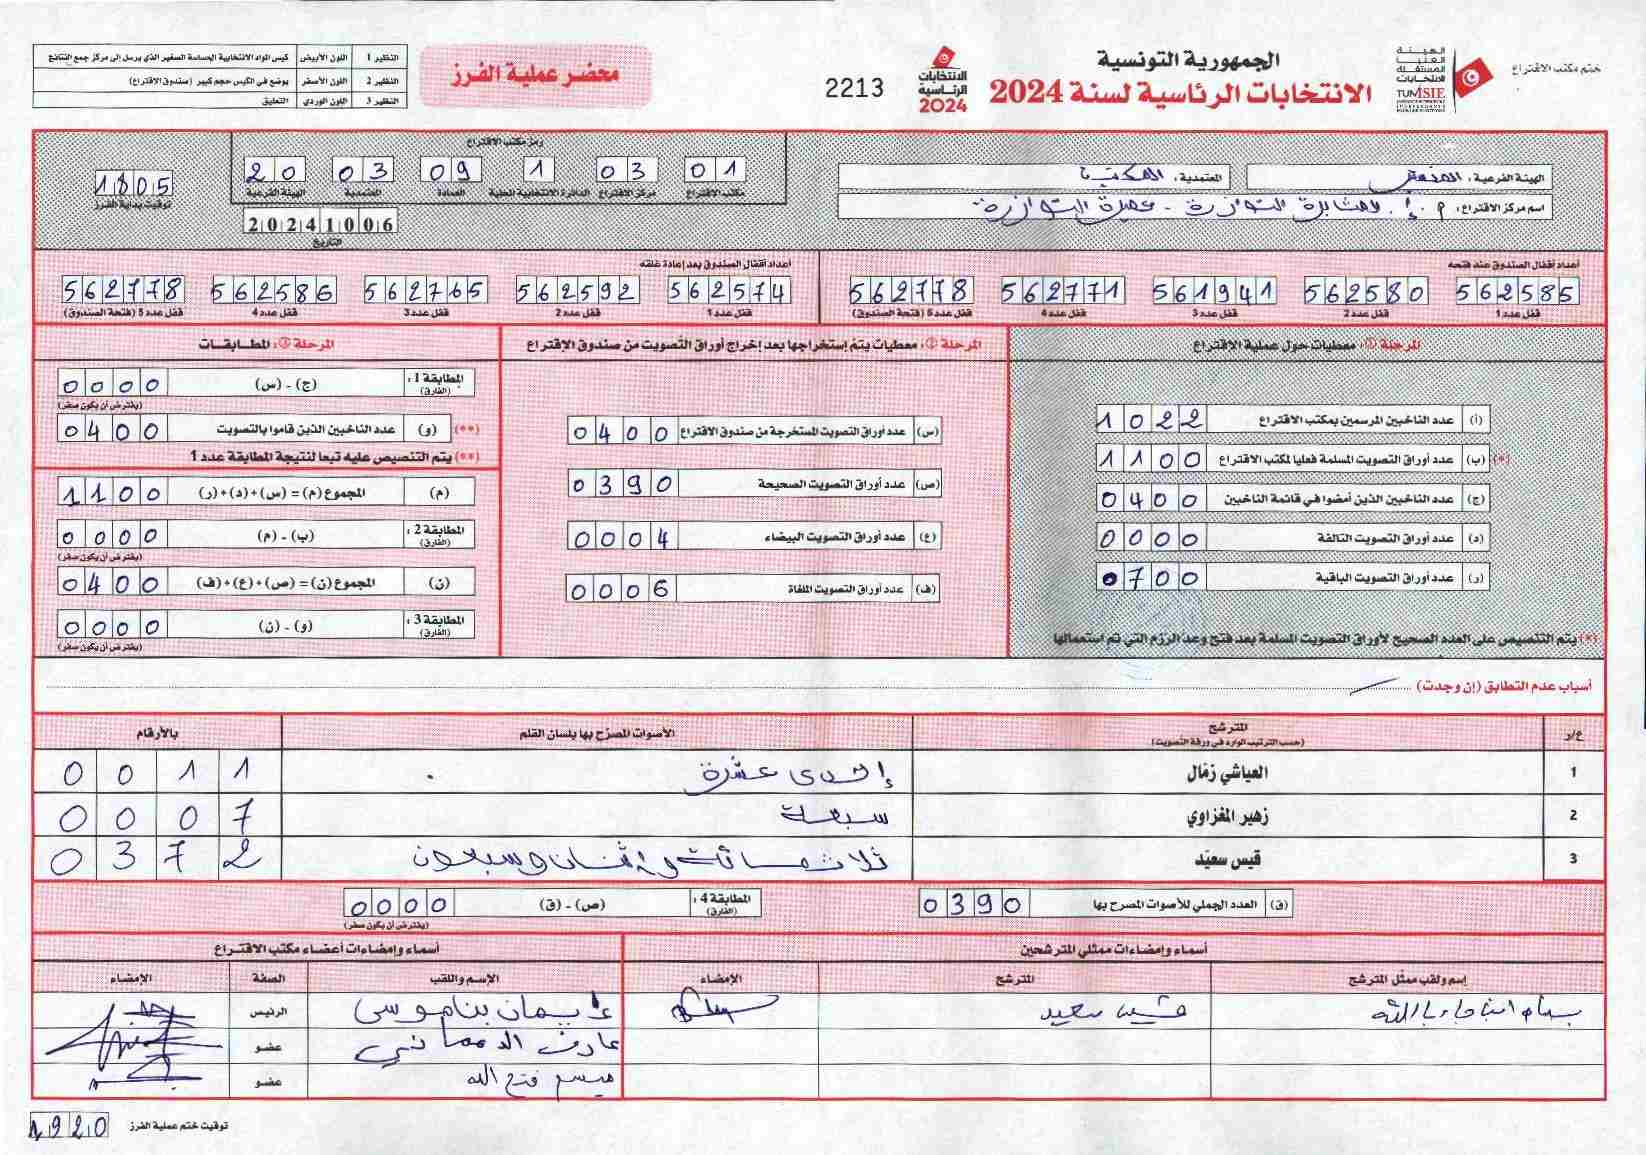 ختم مكتب الاقتراع
الهيئة
العليا
المستقلة
للانتخابات
TUNISIE
الجمهورية التونسية
الانتخابات الرئاسية لسنة 2024
الانتخابات
الرئاسية
2024
2213
محضر عملية الفرز
النظير 1 اللون الأبيض كيس المواد الانتخابية الحساسة الصغير الذي يرسل الى مركز جمع النتائج
النظير 2 اللون الأصفر يوضع في الكيس حجم كبير (صندوق الاقتراع)
النظير 3 اللون الوردي التعليق
الهيئة الفرعية، المنستير
المعتمدية، المكنين
اسم مركز الاقتراع، م. إ. عميرة التوازرة
رمز مكتب الاقتراع
01 03 1 09 03 20
مكتب الاقتراع مركز الاقتراع الدائرة الانتخابية المحلية العمادة المعتمدية الهيئة الفرعية
20241006
التاريخ
1805
توقيت بداية الفرز
أعداد أقفال الصندوق عند فتحه
562585 562580 561941 562771 562778
قفل عدد 1 قفل عدد 2 قفل عدد 3 قفل عدد 4 قفل عدد 5 (فتحة الصندوق)
أعداد أقفال الصندوق بعد إعادة غلقه
562574 562592 562765 562586 562778
قفل عدد 1 قفل عدد 2 قفل عدد 3 قفل عدد 4 قفل عدد 5 (فتحة الصندوق)
المرحلة ①، معطيات حول عملية الاقتراع
(أ) عدد الناخبين المرسمين بمكتب الاقتراع 1022
(*) (ب) عدد أوراق التصويت المسلمة فعليا لمكتب الاقتراع 1100
(ج) عدد الناخبين الذين أمضوا في قائمة الناخبين 0400
(د) عدد أوراق التصويت التالفة 0000
(ر) عدد أوراق التصويت الباقية 0700
(*) يتم التنصيص على العدد الصحيح لأوراق التصويت المسلمة بعد فتح وعد الرزم التي تم استعمالها
المرحلة ②، معطيات يتم إستخراجها بعد إخراج أوراق التصويت من صندوق الإقتراع
(س) عدد أوراق التصويت المستخرجة من صندوق الاقتراع 0400
(ص) عدد أوراق التصويت الصحيحة 0390
(ع) عدد أوراق التصويت البيضاء 0004
(ف) عدد أوراق التصويت الملغاة 0006
المرحلة ③، المطابقات
المطابقة 1 : (الفارق) (ج) - (س) 0000
(يفترض أن يكون صفر)
(**) (و) عدد الناخبين الذين قاموا بالتصويت 0400
(**) يتم التنصيص عليه تبعا لنتيجة المطابقة عدد 1
(م) المجموع (م) = (س) + (د) + (ر) 1100
المطابقة 2 : (الفارق) (ب) - (م) 0000
(يفترض أن يكون صفر)
(ن) المجموع (ن) = (ص) + (ع) + (ف) 0400
المطابقة 3 : (الفارق) (و) - (ن) 0000
(يفترض أن يكون صفر)
أسباب عدم التطابق (إن وجدت)
ع/ر المترشح الأصوات المصرّح بها بلسان القلم بالأرقام
(حسب الترتيب الوارد في ورقة التصويت)
1 العياشي زمّال إحدى عشرة 0011
2 زهير المغزاوي سبعة 0007
3 قيس سعيّد ثلاث مائة و إثنان وسبعون 0372
(ق) العدد الجملي للأصوات المصرح بها 0390
المطابقة 4 : (الفارق) (ص) - (ق) 0000
(يفترض أن يكون صفر)
أسماء وإمضاءات ممثلي المترشحين
إسم ولقب ممثّل المترشح المترشح الإمضاء
قيس سعيد
أسماء وإمضاءات أعضاء مكتب الاقتراع
الإسم واللقب الصفة الإمضاء
إيمان بنا موسى الرئيس
عضو
ميسم فتح الله عضو
1920
توقيت ختم عملية الفرز